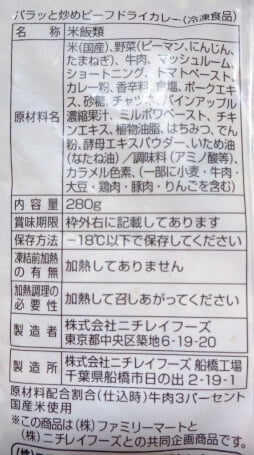 パラッと炒めビーフドライカレー(冷凍食品)
名称 米飯類
原材料名 米(国産)、野菜(ピーマン、にんじん、
たまねぎ)、牛肉、マッシュルーム、
ショートニング、トマトペースト、
カレー粉、香辛料、食塩、ポークエキ
ス、砂糖、チャツネ、パインアップル
濃縮果汁、ミルポワペースト、チキ
ンエキス、植物油脂、はちみつ、でん
粉、酵母エキスパウダー、いため油
(なたね油)/調味料(アミノ酸等)、
カラメル色素、(一部に小麦・牛肉・
大豆・鶏肉・豚肉・りんごを含む)
内容量 280g
賞味期限 枠外右に記載してあります
保存方法 −18℃以下で保存してください
凍結前加熱の有無 加熱してありません
加熱調理の必要性 加熱して召しあがってください
製造者 株式会社ニチレイフーズ
東京都中央区築地6-19-20
製造所 株式会社ニチレイフーズ 船橋工場
千葉県船橋市日の出2-19-1
原材料配合割合(仕込時)牛肉3パーセント
国産米使用
※この商品は(株)ファミリーマートと
(株)ニチレイフーズとの共同企画商品です。